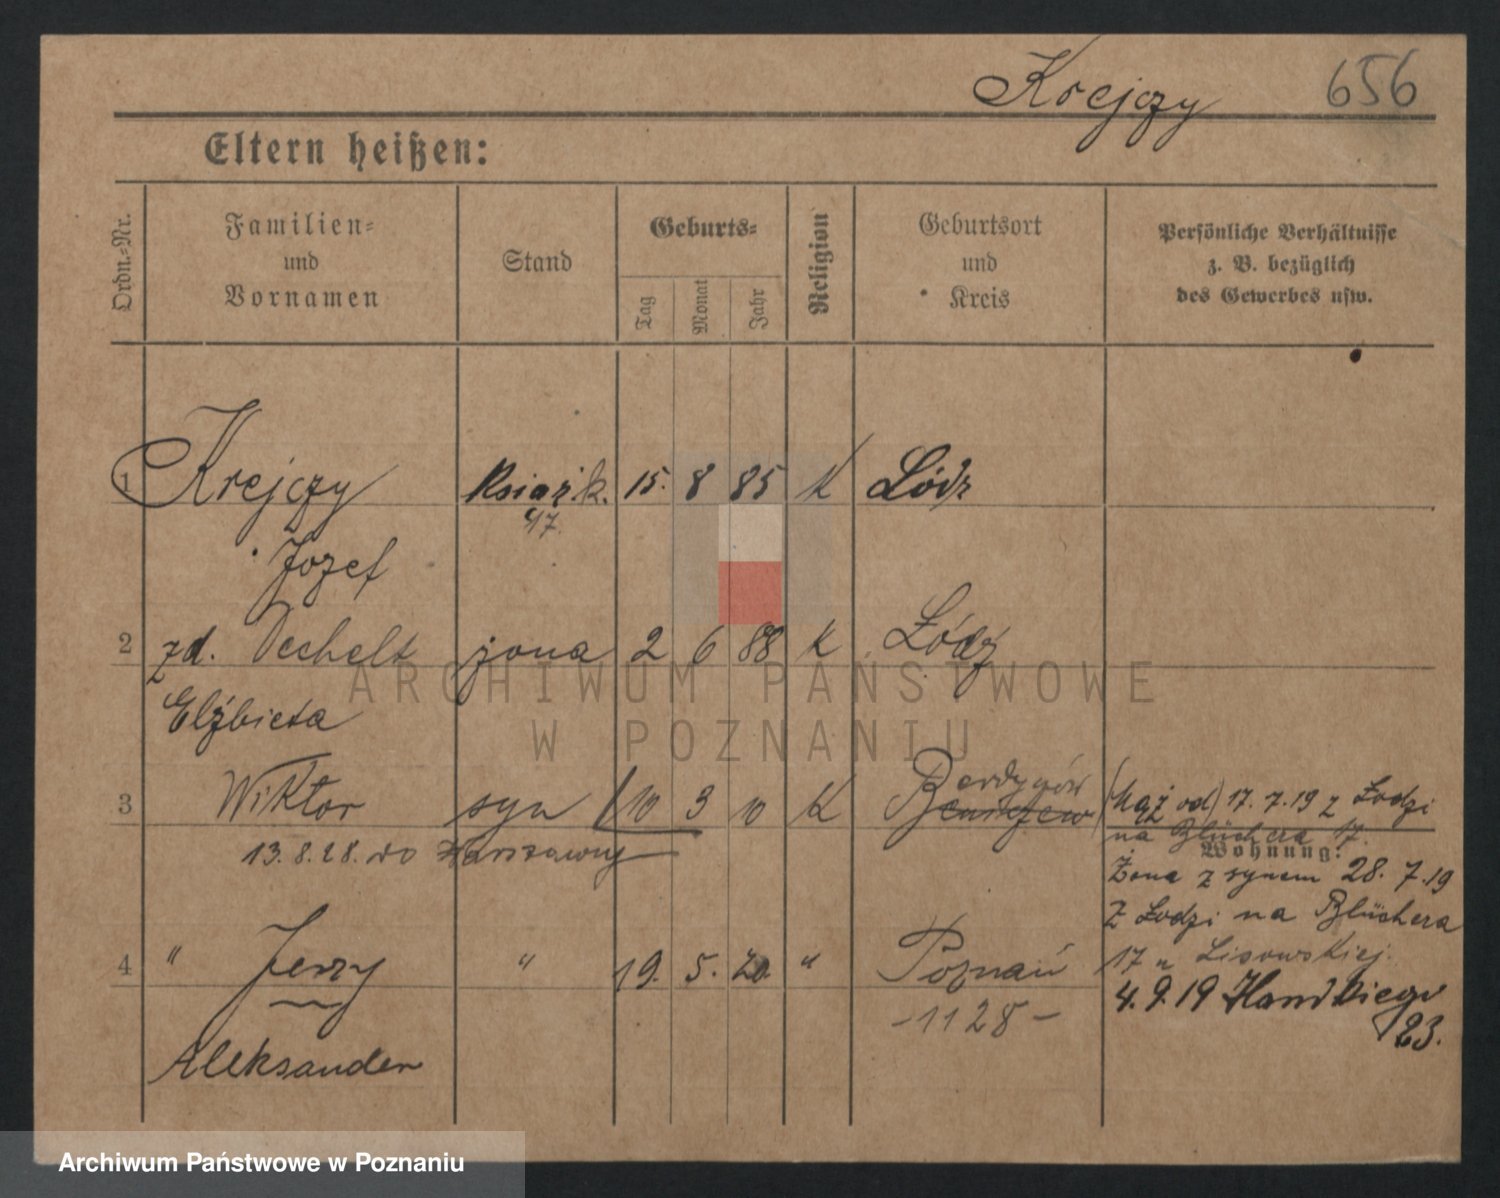 Krejczy 656
Eltern heißen:
Ordn.-Nr.
Familien-
und
Vornamen
Stand
Geburts-
Tag
Monat
Jahr
Religion
Geburtsort
und
Kreis
Persönliche Verhältnisse
z. B. bezüglich
des Gewerbes usw.
1 Krejczy 15. 8 85 K Łódz
17.
Jozef
2 zd. żona 2 6 88 K Łódź
Elżbieta
3 Wiktor syn 10 3 10 K
Mąż od 17. 7. 19 z Łodzi
na Blüchera 17.
Wohnung:
13. 8. 28. do Warszawy
Żona z synem 28. 7. 19
z Łodzi na Blüchera
4 " Jerzy " 19. 5. 20. " Poznań
17 u Lisowskiej.
- 1128 -
4. 9. 19
23.
Aleksander
ARCHIWUM PAŃSTWOWE
W POZNANIU
Archiwum Państwowe w Poznaniu